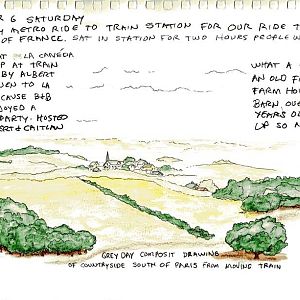 R 6 SATURDAY
METRO RIDE TO TRAIN STATION FOR OUR RIDE T
OF FRANCE. SAT IN STATION FOR TWO HOURS PEOPLE W
AT LA CANEDA
P AT TRAIN
BY ALBERT
VEN TO LA
CAUSE B&B
OYED A
PARTY. HOSTED
ERT & CAITLAN
WHAT A
AN OLD F
FARM HO
BARN. OVE
YEARS OL
UP SO M
GREY DAY COMPOSIT DRAWING
OF COUNTRYSIDE SOUTH OF PARIS FROM MOVING TRAIN